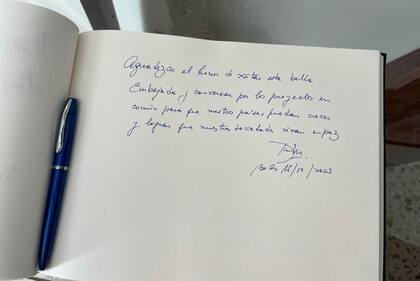 Agradezco el honor de visitar esta bella
Embajada y conversar por los proyectos en
común para que nuestros países puedan crecer
y lograr que nuestras sociedades vivan en paz